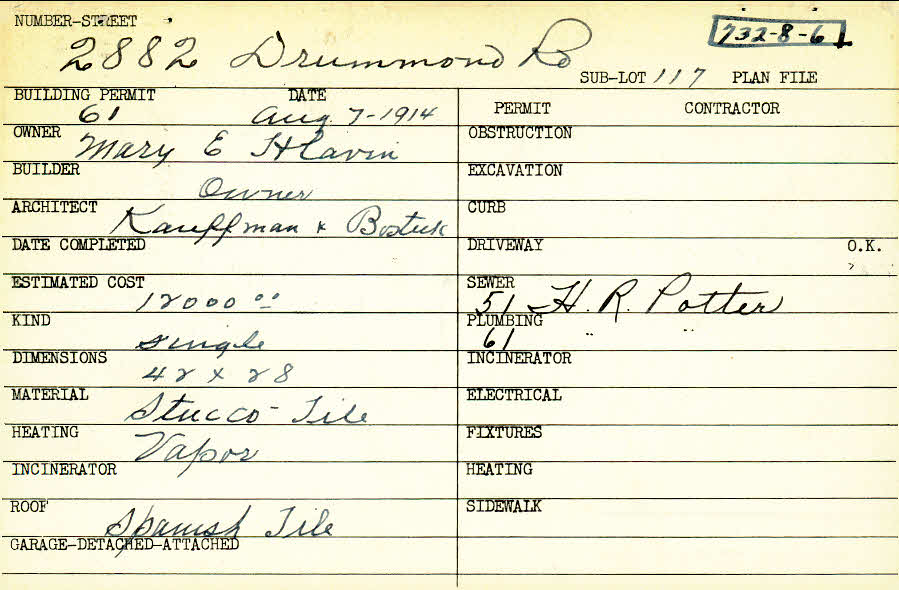 NUMBER-STREET
2882 Drummond Rd
732-8-61
SUB-LOT 117 PLAN FILE
BUILDING PERMIT DATE
61 Aug 7-1914
OWNER Mary E Hlavin
BUILDER Owner
ARCHITECT Kauffman & Bostick
DATE COMPLETED
ESTIMATED COST 12000 00
KIND single
DIMENSIONS 42 x 28
MATERIAL Stucco - Tile
HEATING Vapor
INCINERATOR
ROOF Spanish Tile
GARAGE-DETACHED-ATTACHED
PERMIT CONTRACTOR
OBSTRUCTION
EXCAVATION
CURB
DRIVEWAY O.K.
SEWER
51 H. R. Potter
PLUMBING
61 " "
INCINERATOR
ELECTRICAL
FIXTURES
HEATING
SIDEWALK